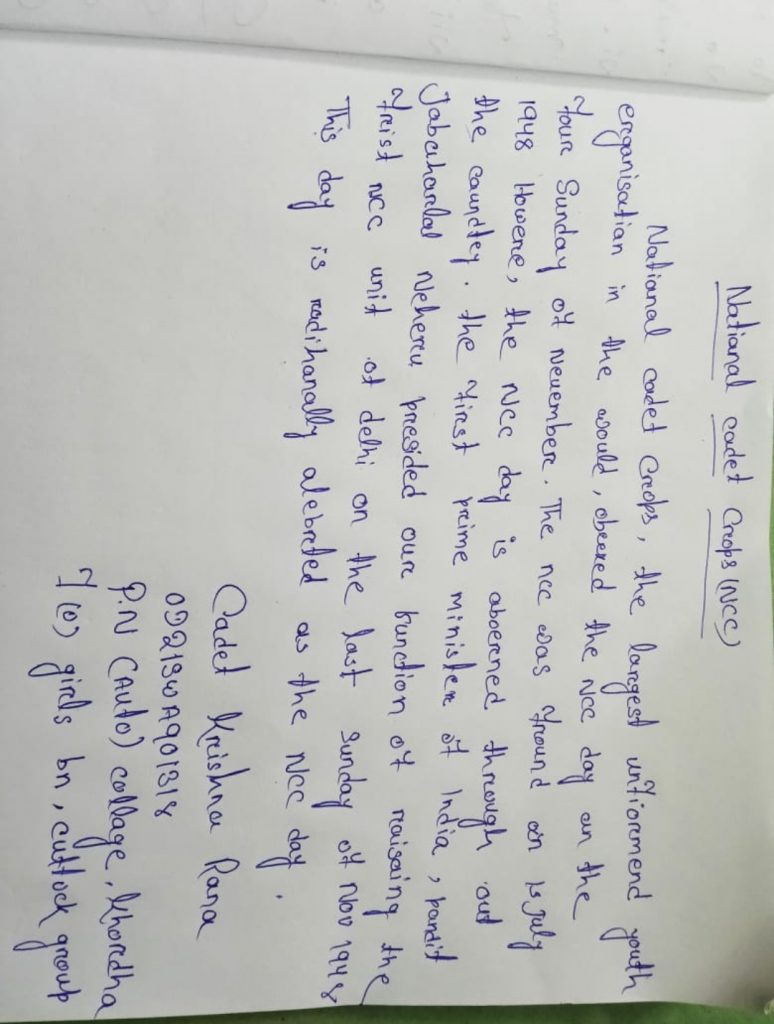 National cadet Creops (NCC)
National cadet Creops, the largest unfioremend youth
erganisatian in the would, obeered the NCC day on the
four Sunday of Nevembere. The ncc was fround on 15 July
1948 Howere, the NCC day is aboerned through out
the caundtey. the first preime minister of India, pandit
Jabaharlal Nehereu presided oure function of reaisaing the
freist NCC unit of delhi on the last Sunday of Nov 1948
This day is radihanally alebreted as the NCC day.
Cadet Kreishna Rana
OD21SWA901318
P.N (Auto) collage, Khoredha
7(O) girls bn, cuttock group